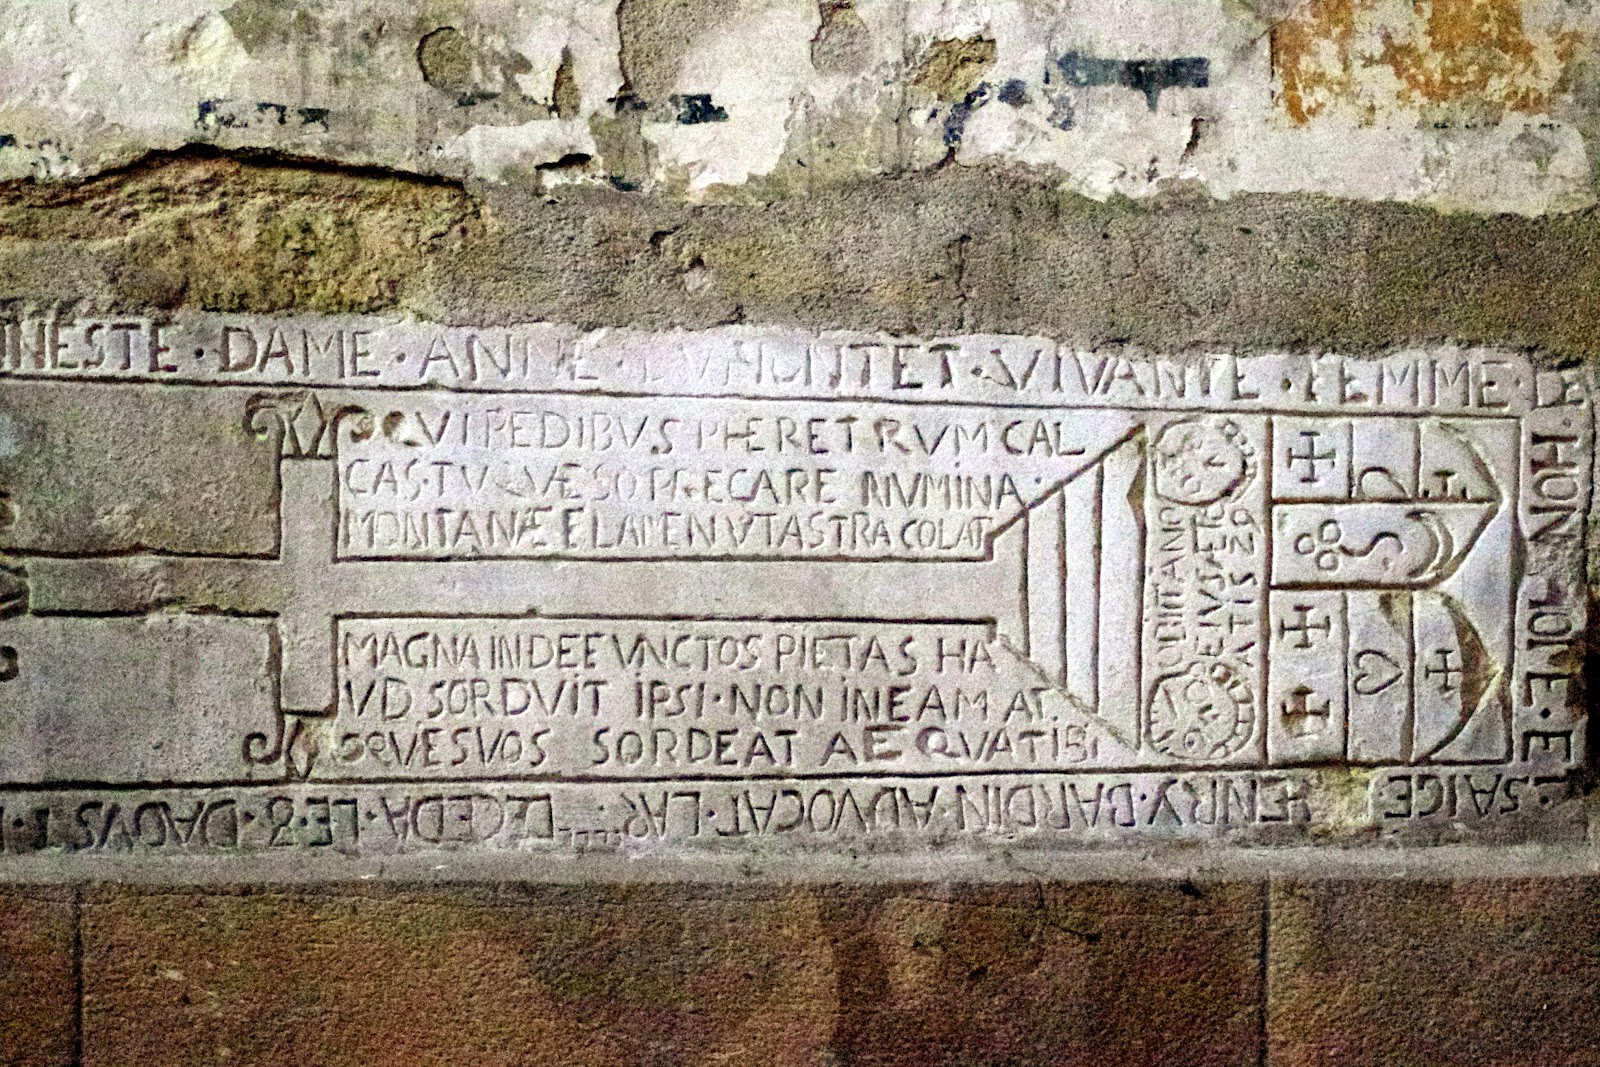 NESTE · DAME · ANNE · DVMONTET · VIVANTE · FEMME · DE
HON
ET · SAIGE HENRY · BARDIN · ADVOCAT · LAR
DECEDA · LE · 8 · DAOVST ·
QVI PEDIBVS PHERETRVM CAL
CAS · TV QVÆSO PRECARE NVMINA ·
MONTANÆ FLAMEN VT ASTRA COLAT
MAGNA IN DEFVNCTOS PIETAS HA
VD SORDVIT IPSI · NON INEAM AT
QVE SVOS SORDEAT AEQVA TIBI
OBIIT ANO
EIVS ÆT
ATIS 29